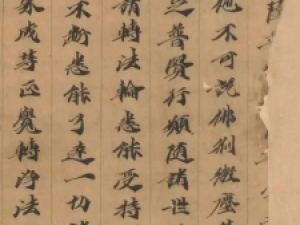 他不可說佛刹微塵
之普賢行願随諸世
請轉法輪悉能受持
不斷悉能了達一切
成等正覺轉淨法